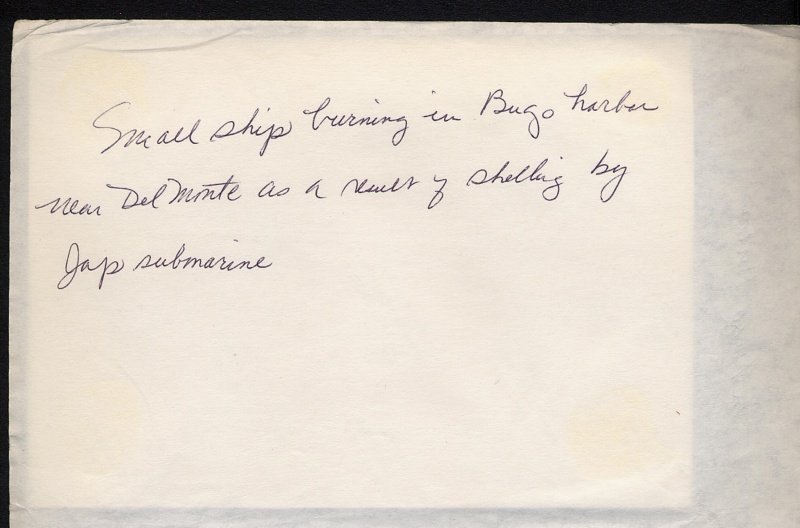 Small ship burning in Bugo harbor
near Del Monte as a result of shelling by
Jap submarine